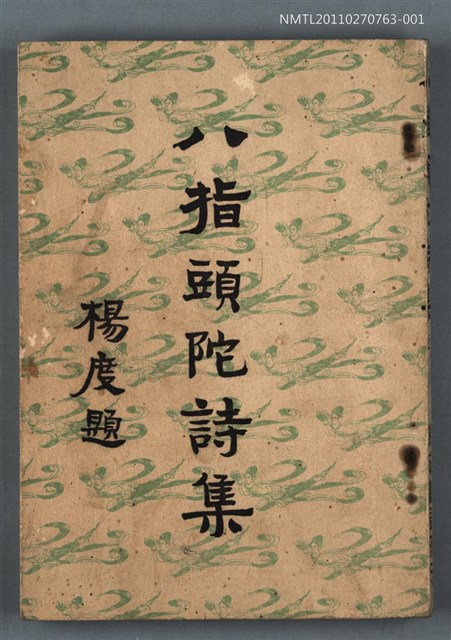 NMTL20110270763-001
八指頭陀詩集
楊度題